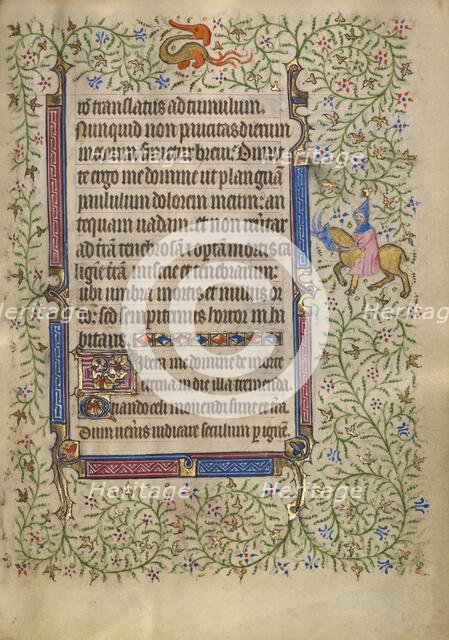 ro translatus ad tumulum.
Nunquid non paucitas dierum
meorum finietur breui: Dimit
te ergo me domine ut plangã
paululum dolorem meum: an
tequam uadam et non reuertar
ad trãm tenebrosã: et optã mortis ca
ligie trãm miserie et tenebrarum:
ubi umbra mortis et nullus or
do: sed sempiternus horror inha
bitans.
Libera me domine de morte
eterna in die illa tremenda.
Quando celi mouendi sunt et trã.
Dum ueneris iudicare seculum per ignem.
Heritage Images